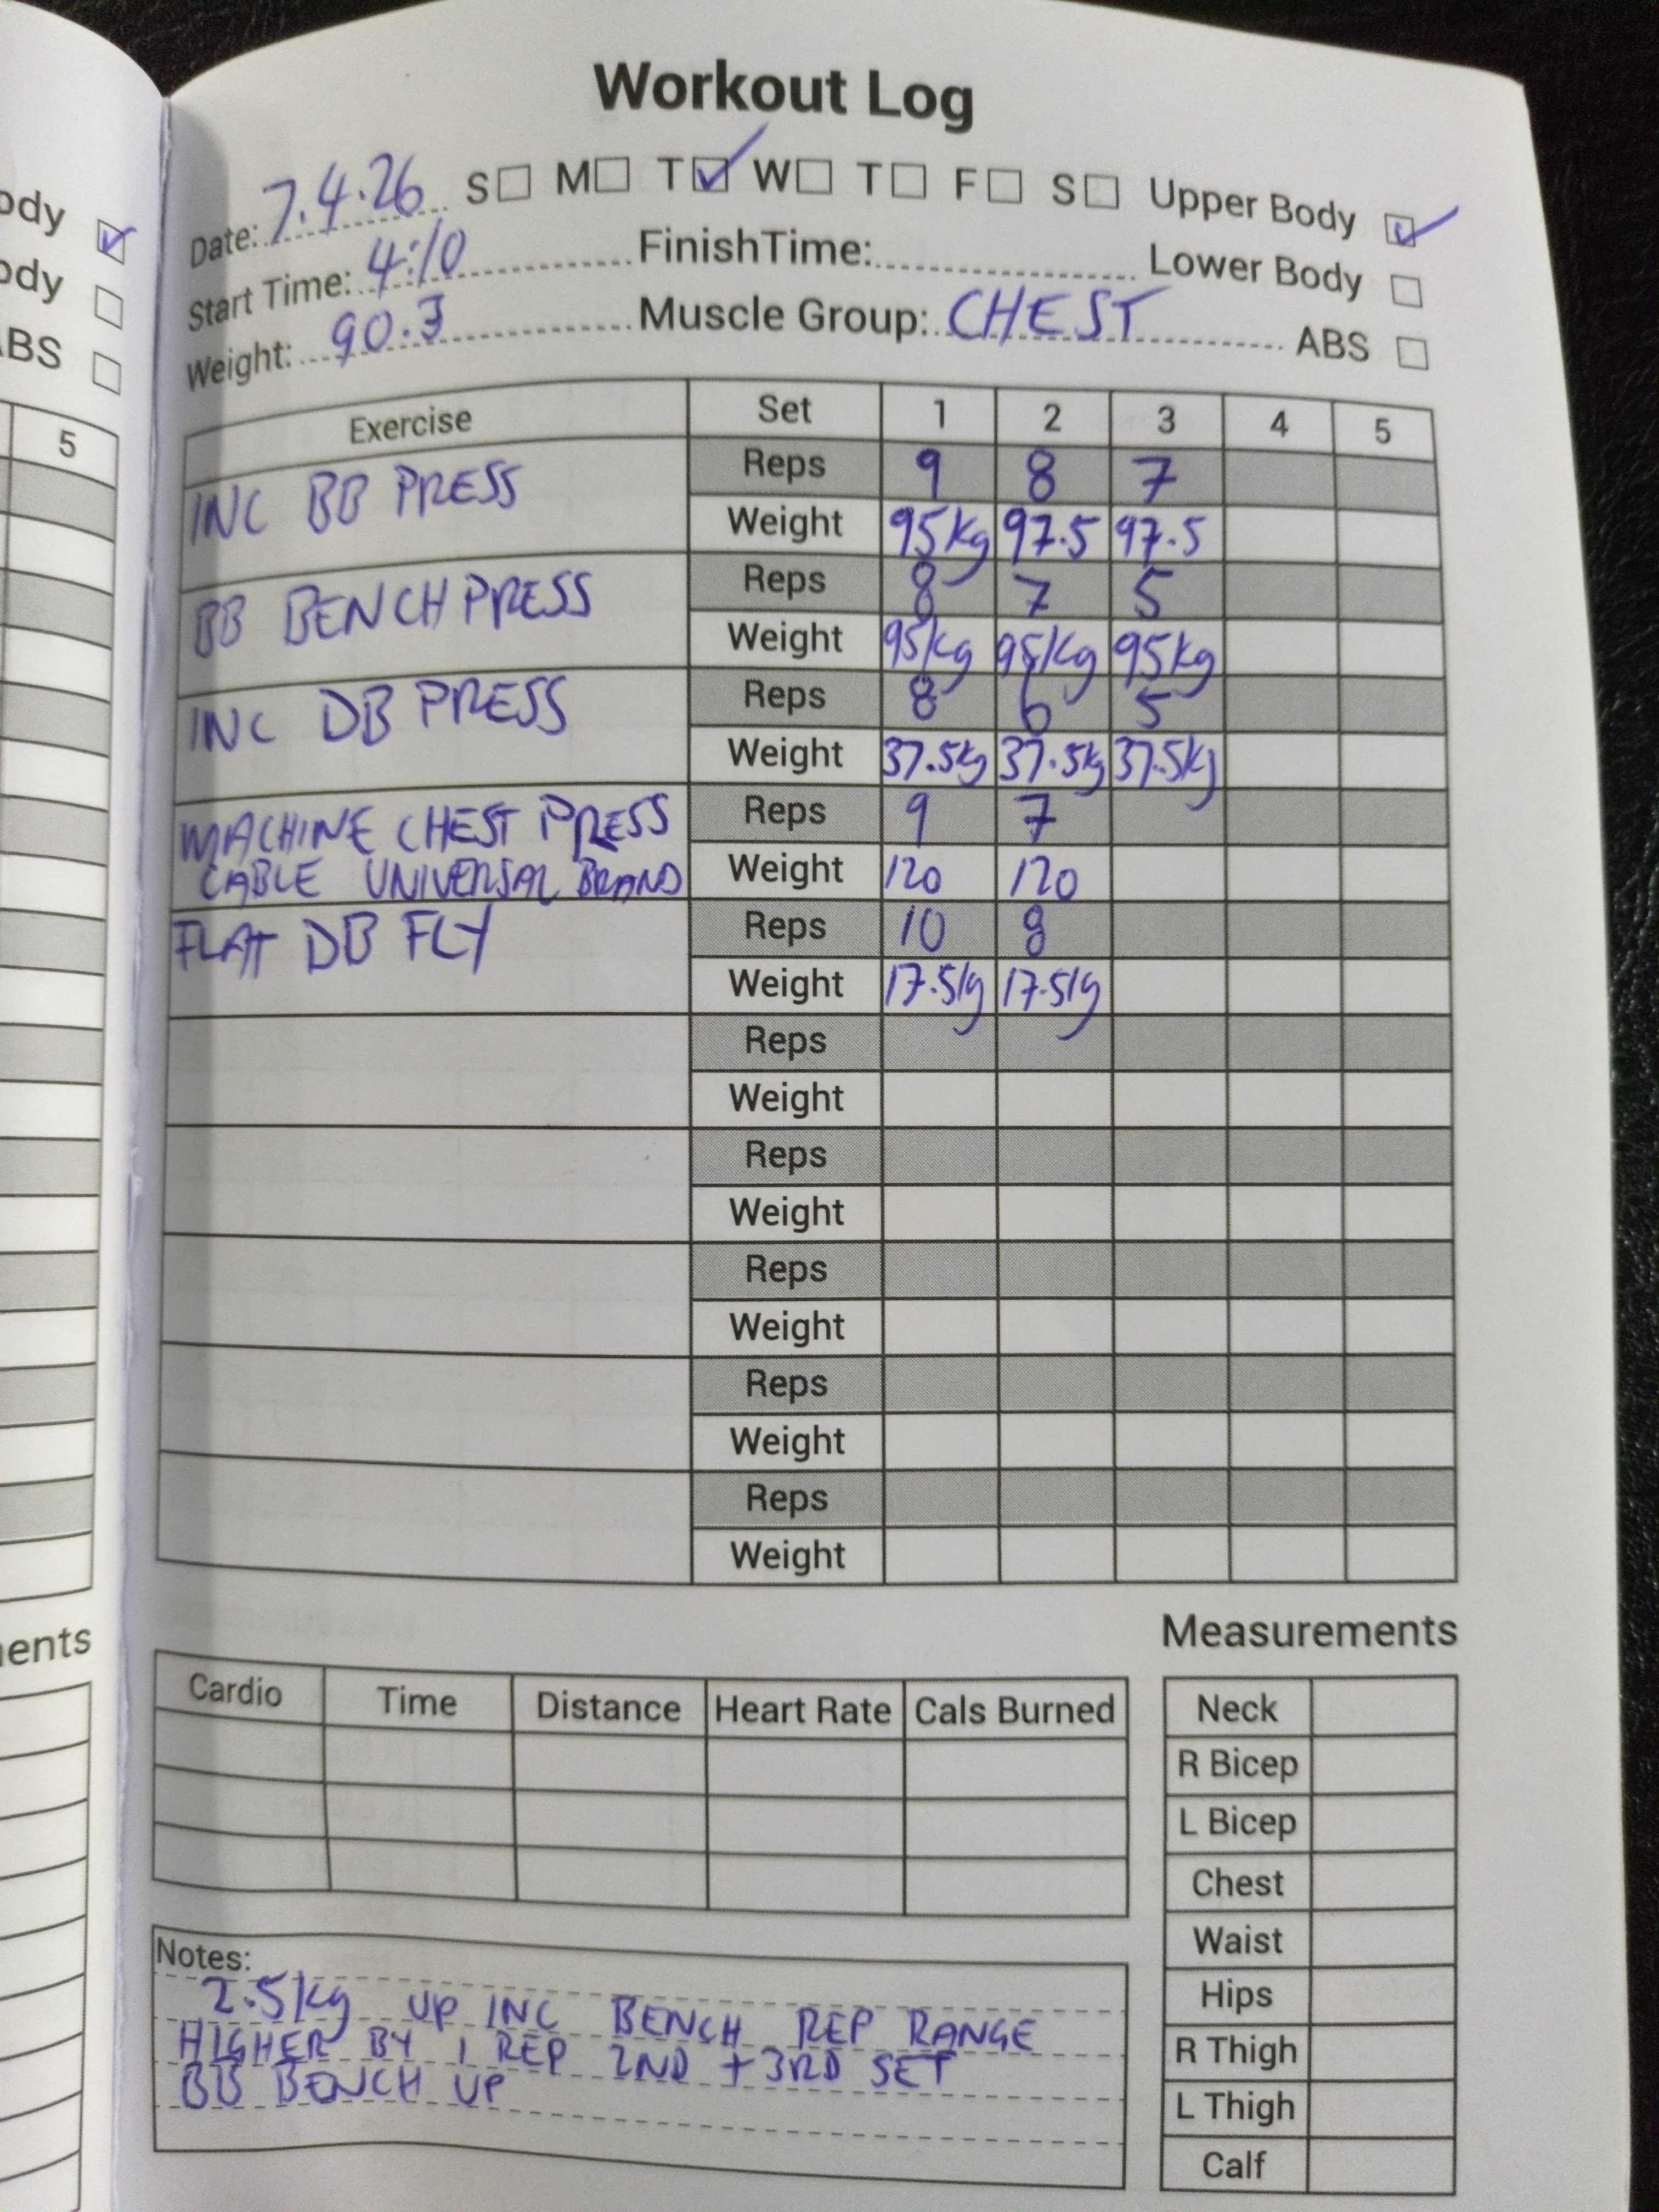 Workout Log
ody
ody
ABS
5
ents
Date: 7.4.26 S M T W T F S Upper Body
Start Time: 4:10 FinishTime: Lower Body
Weight: 90.3 Muscle Group: CHEST ABS
Exercise Set 1 2 3 4 5
INC BB PRESS Reps 9 8 7
Weight 95kg 97.5 97.5
BB BENCH PRESS Reps 8 7 5
Weight 95kg 95kg 95kg
INC DB PRESS Reps 8 6 5
Weight 37.5kg 37.5kg 37.5kg
MACHINE CHEST PRESS Reps 9 7
CABLE UNIVERSAL BRAND Weight 120 120
FLAT DB FLY Reps 10 8
Weight 17.5kg 17.5kg
Reps
Weight
Reps
Weight
Reps
Weight
Reps
Weight
Reps
Weight
Cardio Time Distance Heart Rate Cals Burned
Notes:
2.5kg UP INC BENCH REP RANGE
HIGHER BY 1 REP 2ND + 3RD SET
BB BENCH UP
Measurements
Neck
R Bicep
L Bicep
Chest
Waist
Hips
R Thigh
L Thigh
Calf